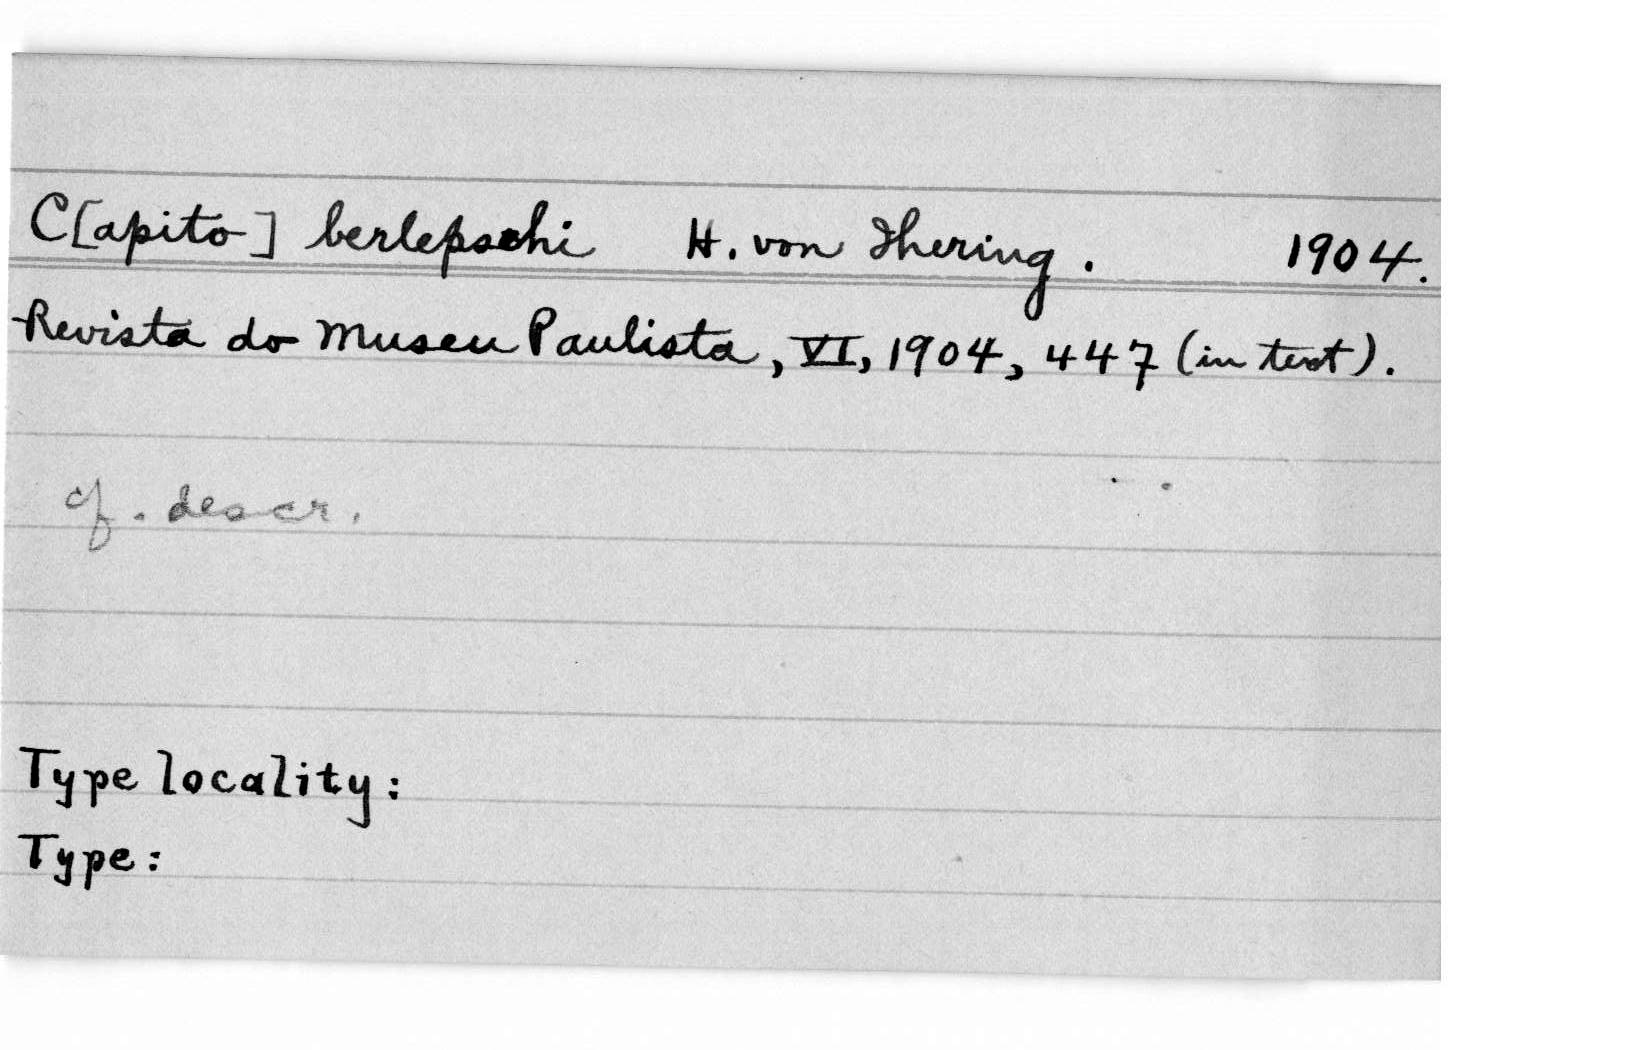 C[apito] berlepschi H. von Ihering. 1904.
Revista do Museu Paulista, VI, 1904, 447 (in text).
cf. descr.
Type locality:
Type: